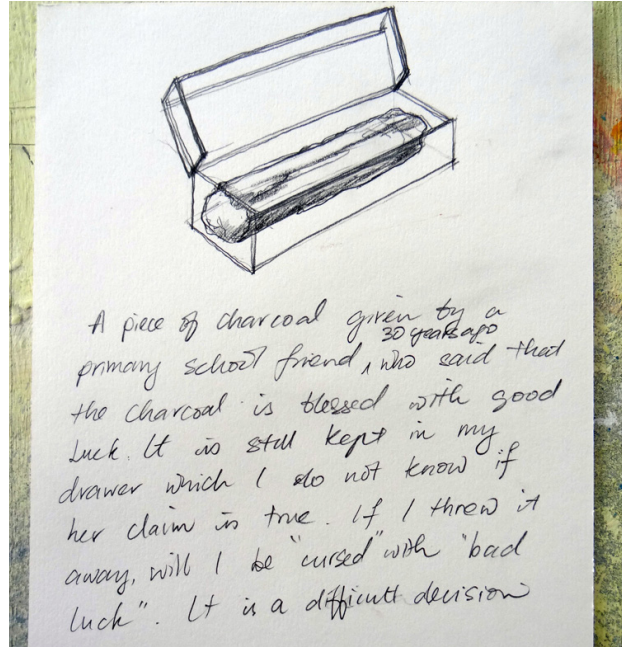 A piece of charcoal given by a
30 years ago
primary school friend, ^ who said that
the charcoal is blessed with good
luck. It is still kept in my
drawer which I do not know if
her claim is true. If I threw it
away, will I be "cursed" with "bad
luck". It is a difficult decision